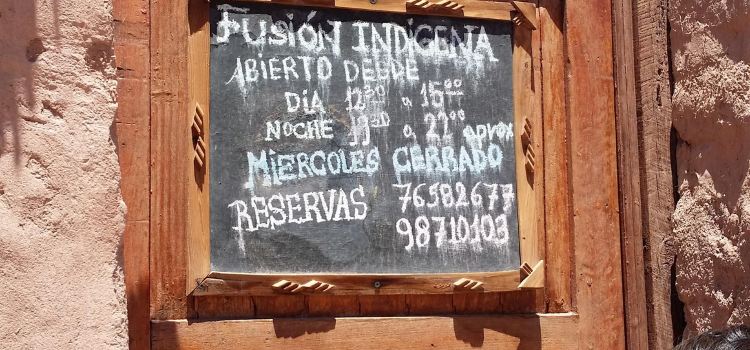 FUSIÓN INDÍGENA
ABIERTO DESDE
DÍA 12³⁰ a 15⁰⁰
NOCHE 19³⁰ a 22⁰⁰ aprox
MIERCOLES CERRADO
RESERVAS 76582677
98710103